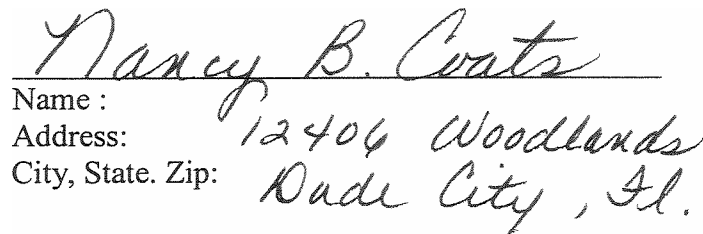 Nancy B. Coats
Name :
Address: 12406 Woodlands
City, State. Zip: Dade City, Fl.